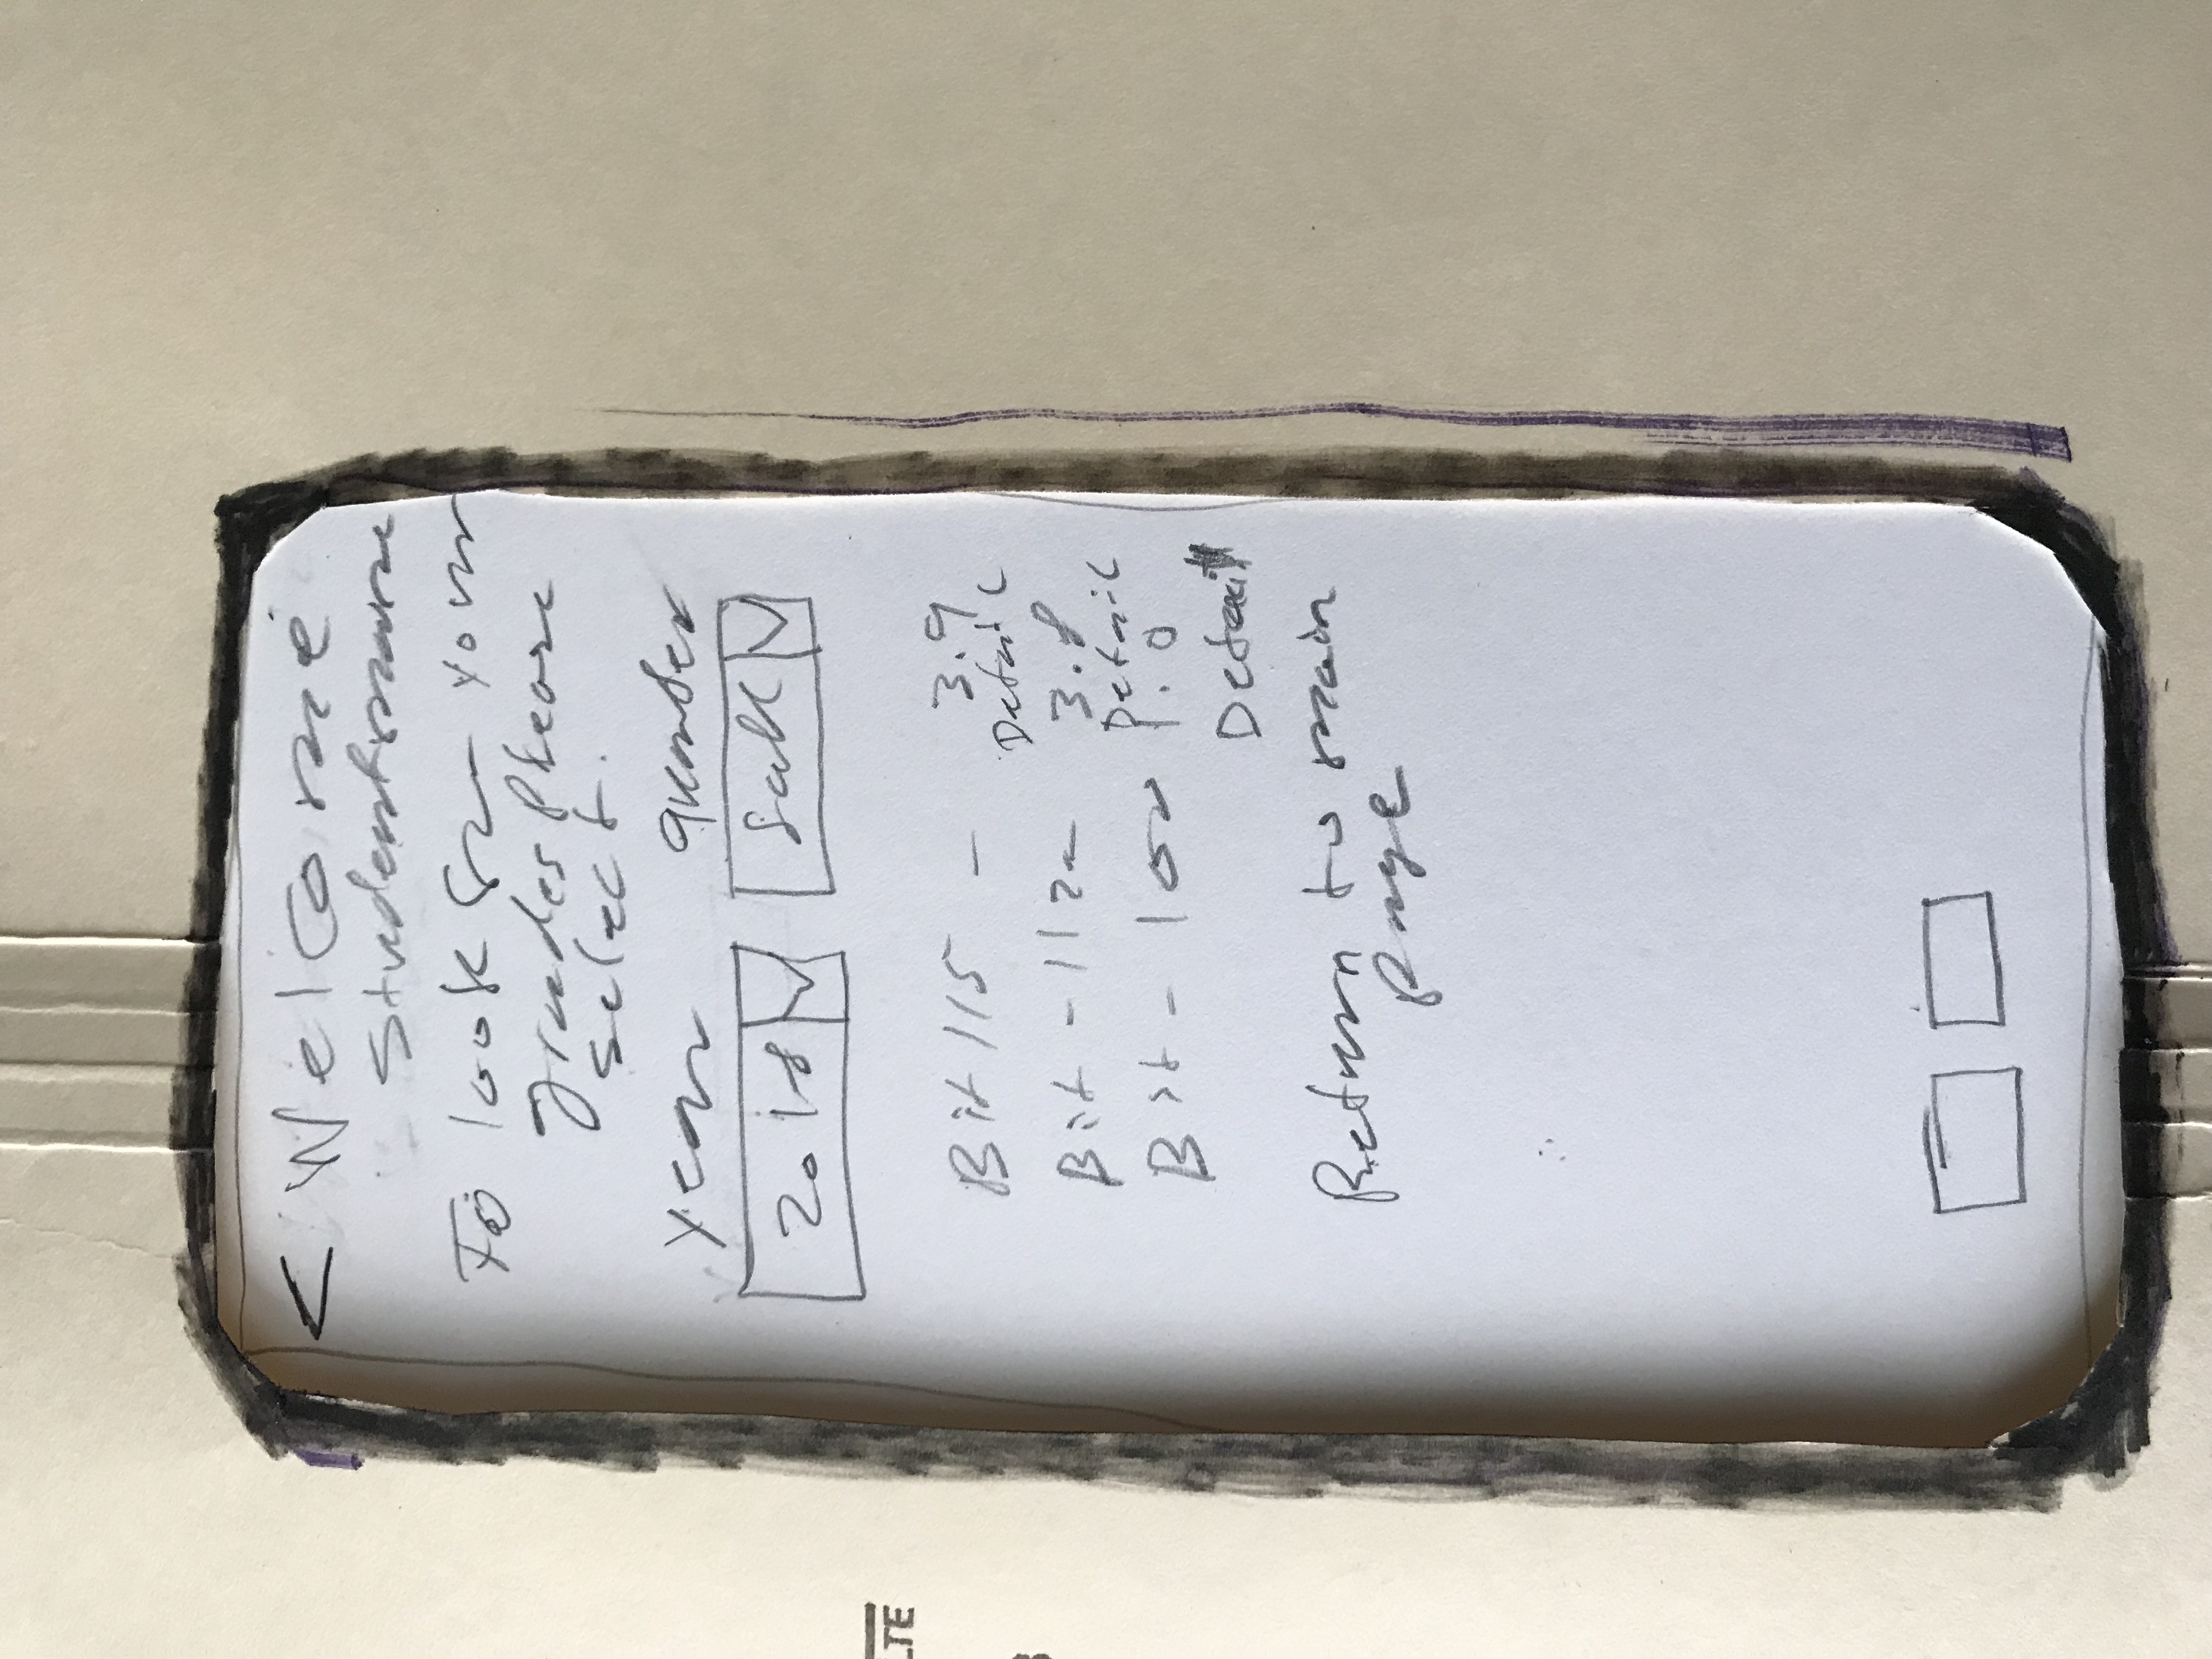 < Welcome
Studentname
To look for your
grades Please
select.
year quarter
2018 fall
Bit 115 - 3.9
Detail
Bit - 112 - 3.8
Detail
Bit - 100 1.0
Detail
Return to main
page
LTE